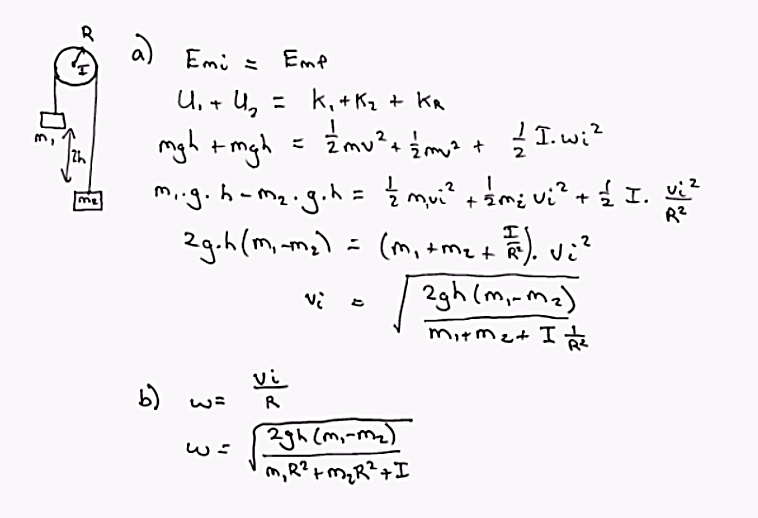 R
I
m₁
2h
m₂
a) Emi = Emf
U₁ + U₂ = K₁ + K₂ + KR
mgh + mgh = 1/2 mv² + 1/2 mv² + 1/2 I.wi²
m₁.g.h - m₂.g.h = 1/2 m₁vi² + 1/2 m₂ vi² + 1/2 I. vi²/R²
2g.h(m₁-m₂) = (m₁ + m₂ + I/R²). vi²
vi = √(2gh(m₁-m₂)/(m₁+m₂+ I 1/R²))
b) w = vi/R
w = √(2gh(m₁-m₂)/(m₁R²+m₂R²+I))